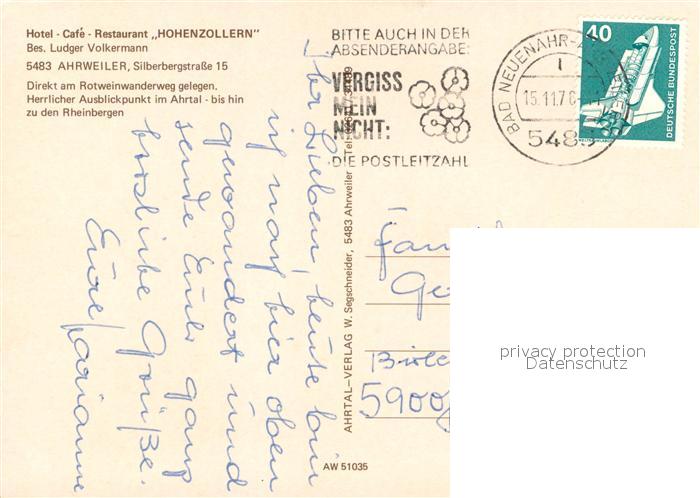 Hotel - Café - Restaurant „HOHENZOLLERN"
Bes. Ludger Volkermann
5483 AHRWEILER, Silberbergstraße 15
Direkt am Rotweinwanderweg gelegen.
Herrlicher Ausblickpunkt im Ahrtal - bis hin
zu den Rheinbergen
BITTE AUCH IN DER
ABSENDERANGABE:
VERGISS
MEIN
NICHT:
DIE POSTLEITZAHL
BAD NEUENAHR-A
15.11.7
548
40
DEUTSCHE BUNDESPOST
Ihr Lieben, heute bin
ich nach hier oben
gewandert und
sende Euch ganz
herzliche Grüße.
Eure Marianne
AHRTAL-VERLAG W. Segschneider, 5483 Ahrweiler
Fam
5900
AW 51035
privacy protection
Datenschutz